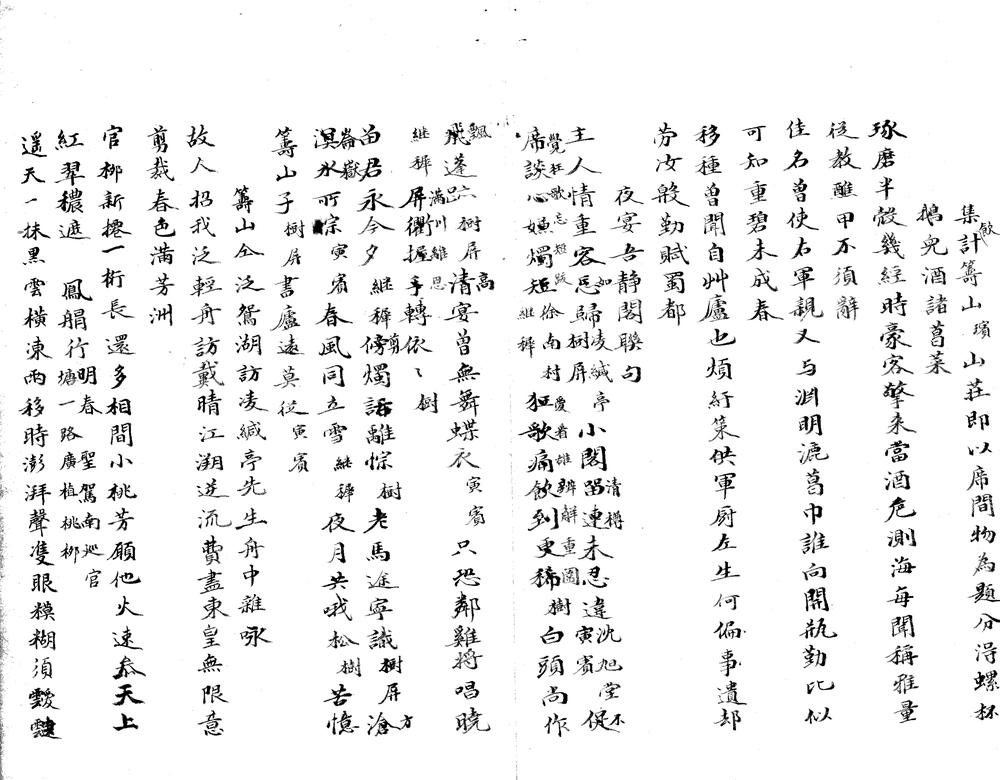 集飲計籌山濱山莊即以席間物為題分得螺杯
鵝兒酒諸葛菜
琢磨半殼幾經時豪客擎来當酒巵測海每聞稱雅量
從教蘸甲不須辭
佳名曾使右軍親又与淵明漉葛巾誰向開瓶勤比似
可知重碧未成春
移種曾聞自艸廬也煩紆策供軍厨左生何偏事遺却
勞汝殷勤賦蜀都
夜宴吾静閣聯句
主人情重客忘如歸樹屏凌緘亭小閣留連清樽未忍違寅賓沈旭堂促不
席談心嫌燭短継穉覺狂歌忘燈跋徐南村狂歌痛飲到更稀樹愛看雄辨解重圍白頭尚作
飛飄蓬跡樹屏清高宴曾無舞蝶衣寅賓只恐鄰雞將唱曉
継穉屏衢握手滿川離思轉依〻樹
苗君永今夕継穉傍剪燭話離悰樹老馬途寧識樹屏滄方
溟水崙嶽可宗寅賓春風同立雪継穉夜月共哦松樹苦憶
籌山子樹屏書廬遠莫從寅賓
籌山仝泛鴛湖訪凌緘亭先生舟中雜咏
故人招我泛輕舟訪戴晴江溯逆流費盡東皇無限意
剪裁春色滿芳洲
官柳新攙一桁長還多相間小桃芳願他火速叅天上
紅翠穠遮鳳艒行明春聖駕南廵官塘一路廣植桃柳
遥天一抹黑雲橫涷雨移時澎湃聲隻眼糢糊須靉靆